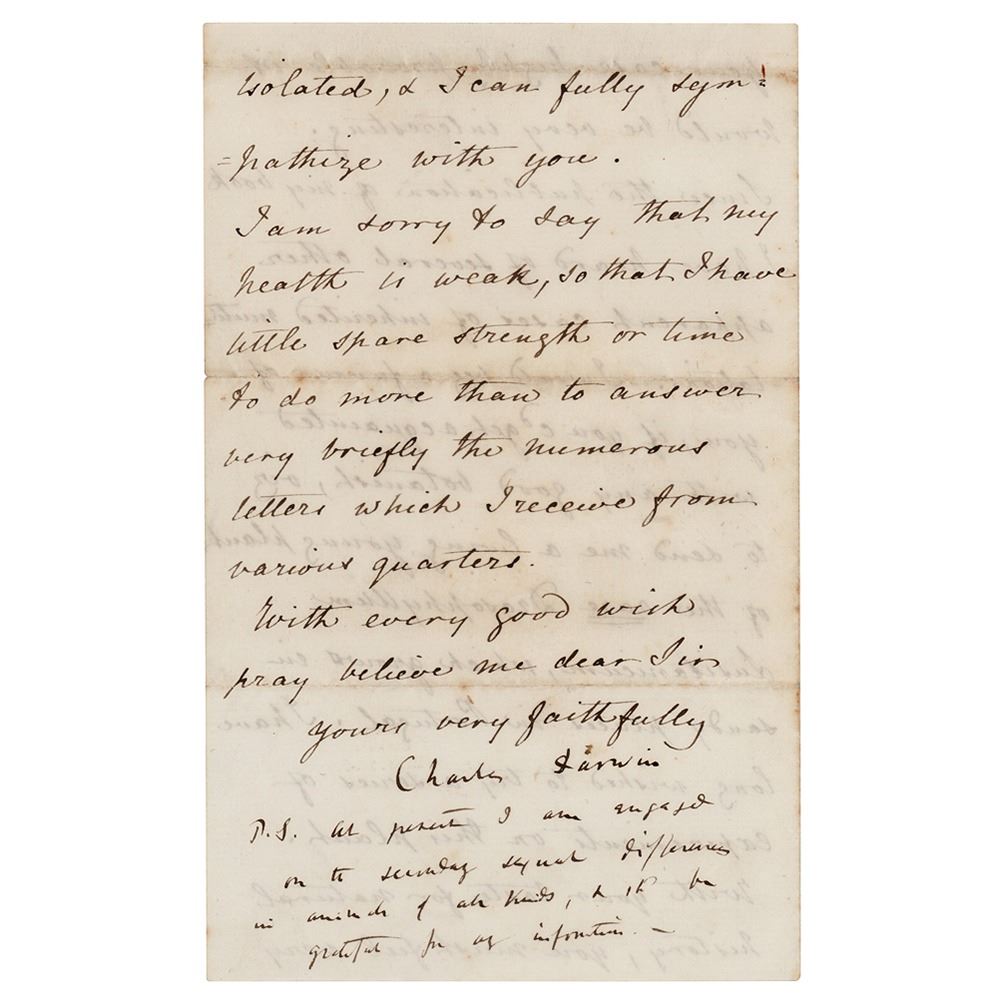 isolated, & I can fully sym=
=pathize with you.
I am sorry to say that my
health is weak, so that I have
little spare strength or time
to do more than to answer
very briefly the numerous
letters which I receive from
various quarters.
With every good wish
pray believe me dear Sir
yours very faithfully
Charles Darwin
P.S. At present I am engaged
on the secondary sexual differences
in animals of all kinds, & shd be
grateful for any information. —